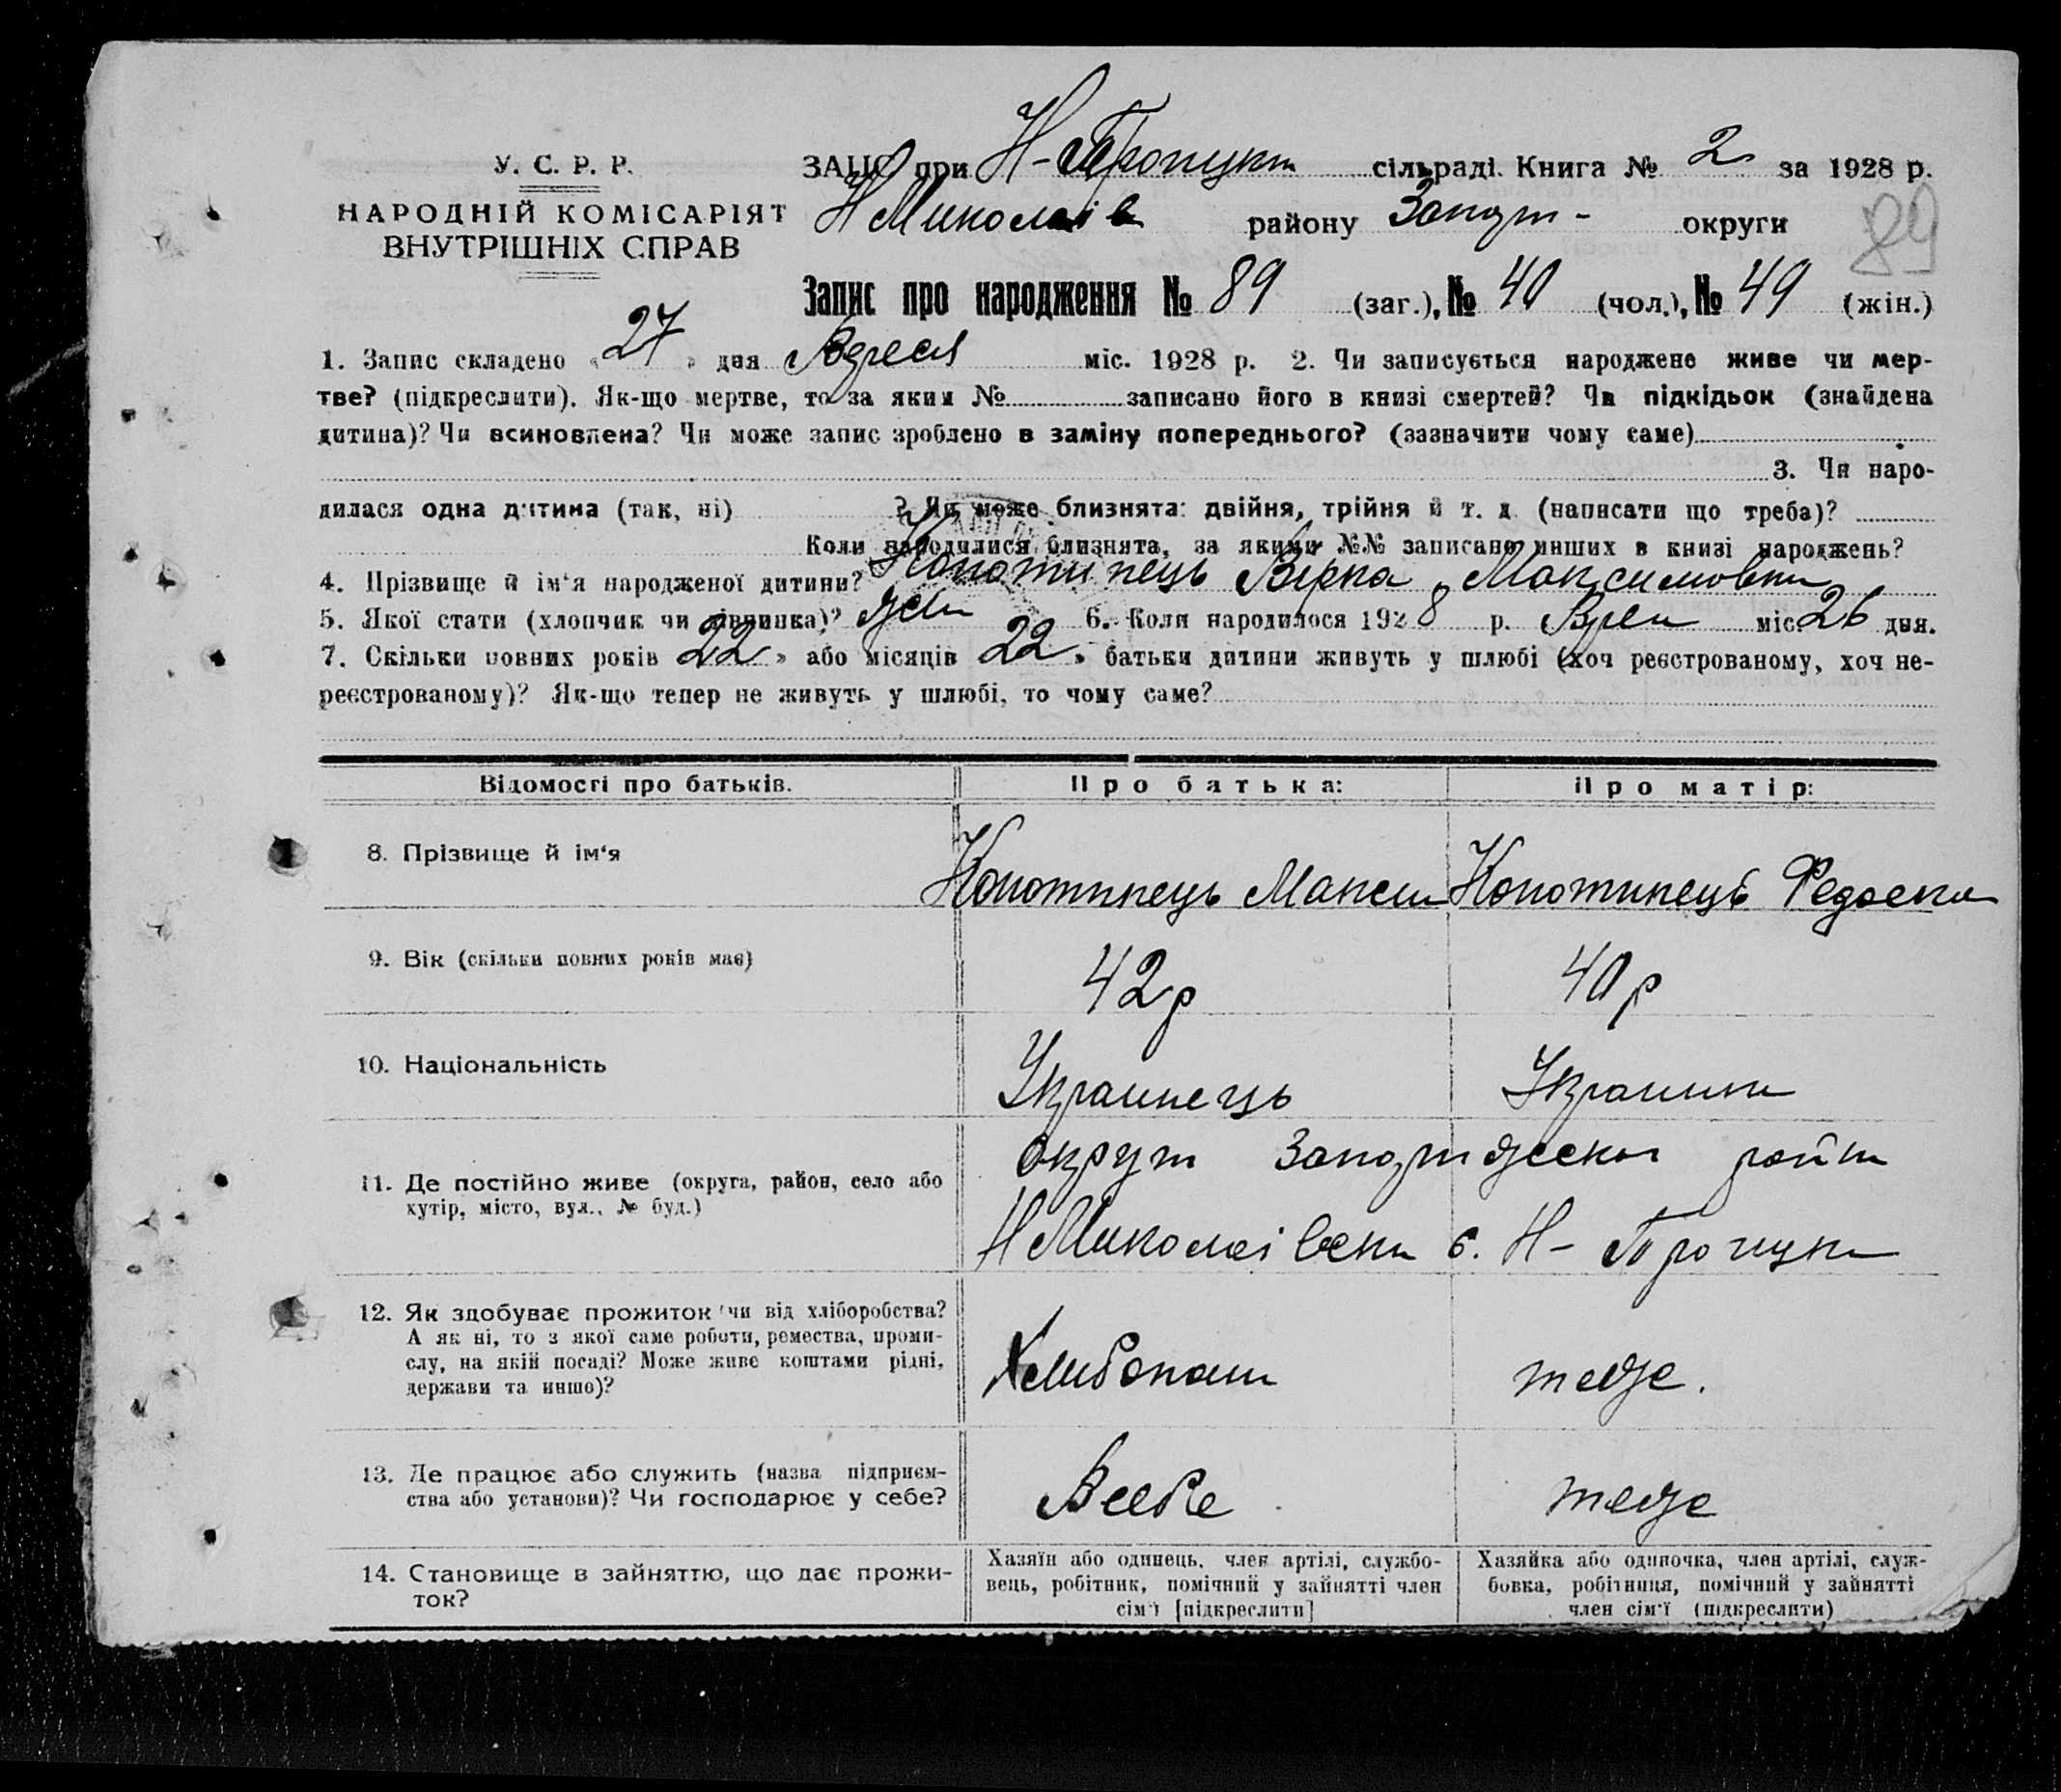 У. С. Р. Р.
НАРОДНІЙ КОМІСАРІЯТ
ВНУТРІШНІХ СПРАВ
ЗАЦС при Н- сільраді. Книга № 2 за 1928 р.
Н Миколаїв району Запор - округи
89
Запис про народження № 89 (заг.), № 40 (чол.), № 49 (жін.)
1. Запис складено « 27 » дня міс. 1928 р. 2. Чи записується народжене живе чи мер-
тве? (підкреслити). Як-що мертве, то за яким № записано його в книзі смертей? Чи підкідьок (знайдена
дитина)? Чи всиновлена? Чи може запис зроблено в заміну попереднього? (зазначити чому саме)
3. Чи наро-
дилася одна дитина (так, ні) ? Чи може близнята: двійня, трійня й т. д (написати що треба)?
Коли народилися близнята, за якими №№ записано инших в книзі народжень?
4. Прізвище й ім‘я народженої дитини? Конотипець Вірка Максимовни
5. Якої стати (хлопчик чи дівчинка)? 6. Коли народилося 1928 р. міс. 26 дня.
7. Скільки повних років 22 » або місяців 22 » батьки дитини живуть у шлюбі (хоч реєстрованому, хоч не-
реєстрованому)? Як-що тепер не живуть у шлюбі, то чому саме?
Відомості про батьків. Про батька: Про матір:
8. Прізвище й ім‘я Конотипець Максим Конотипець Федоска
9. Вік (скільки повних років має) 42 р 40 р
10. Національність Украинець Украинка
11. Де постійно живе (округа, район, село або
хутір, місто, вул., № буд.)
округи район
Н Миколаівски с. Н-
12. Як здобуває прожиток чи від хліборобства?
А як ні, то з якої саме роботи, ремества, проми-
слу, на якій посаді? Може живе коштами рідні,
держави та инше)?
Хлибопаш теже.
13. Де працює або служить (назва підприєм-
ства або установи)? Чи господарює у себе?
Всебе теже
14. Становище в зайняттю, що дає прожи-
ток?
Хазяїн або одинець, член артілі, службо-
вець, робітник, помічний у зайнятті член
сім‘ї [підкреслити]
Хазяйка або одиночка, член артілі, служ-
бовка, робітниця, помічний у зайнятті
член сім‘ї (підкреслити)